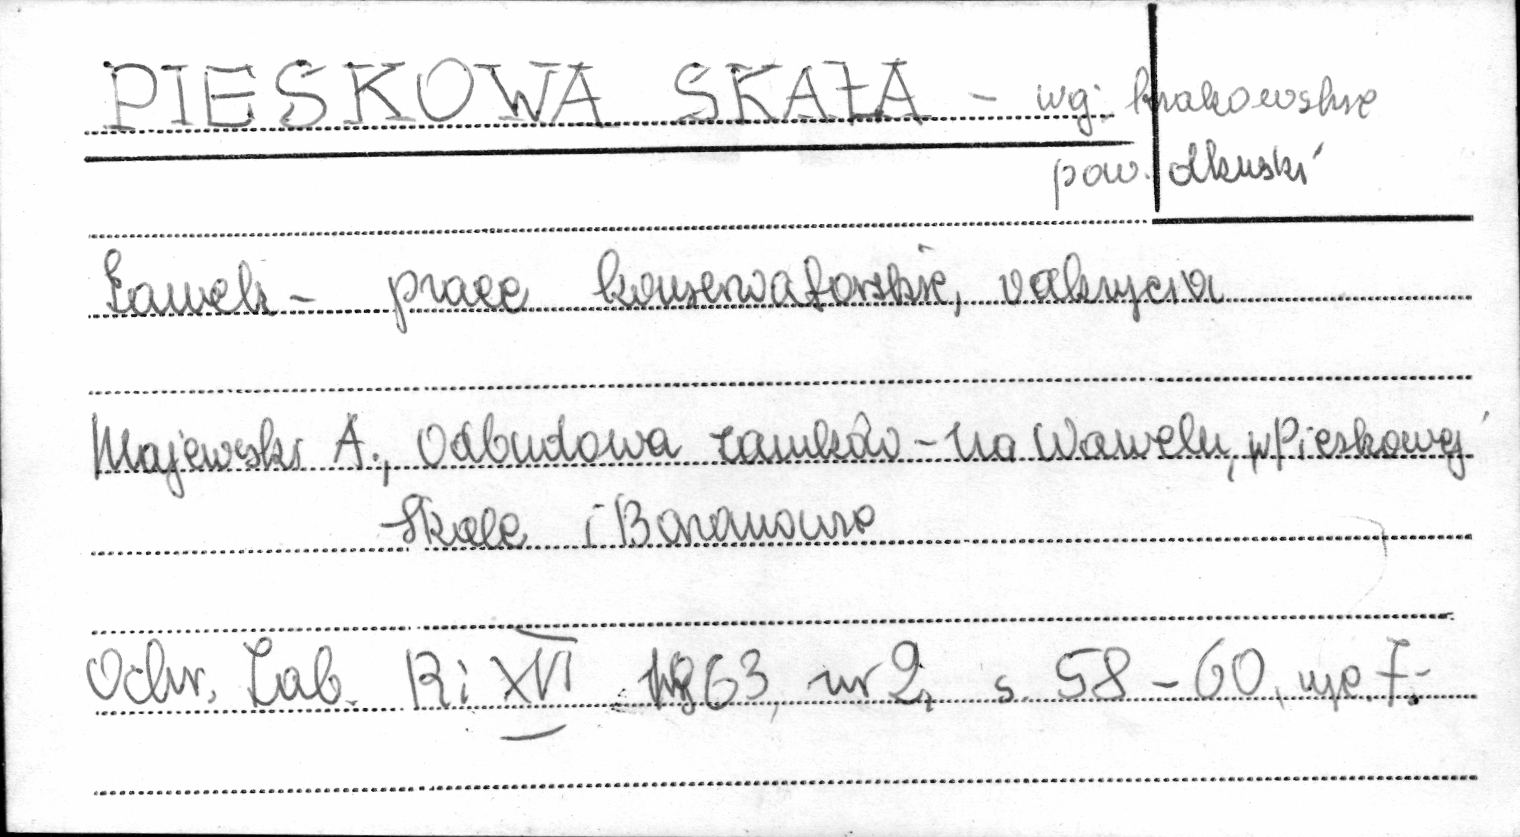 PIESKOWA SKAŁA - woj. krakowskie
pow. olkuski
Zamek - prace konserwatorskie, odkrycia
Majewski A., Odbudowa zamków - na Wawelu, w Pieskowej
Skale i Baranowie
Ochr. Zab. R: XVI 1963, nr 2, s 58-60, 7.